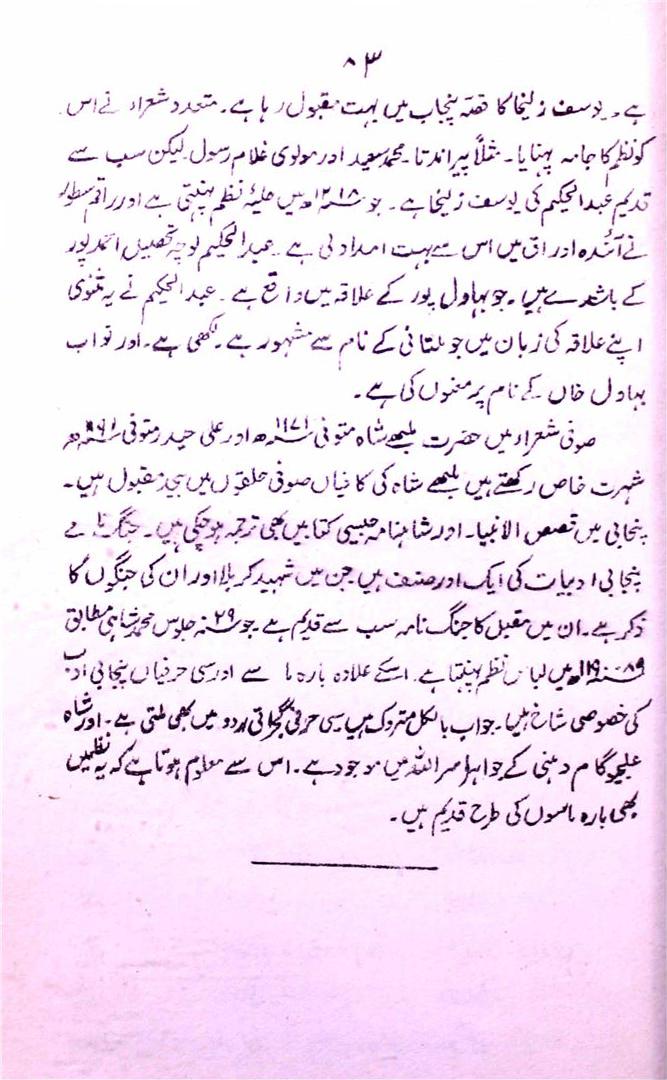 ۸۳
ہے۔ یوسف زلیخا کا قصّہ پنجاب میں بہت مقبول رہا ہے۔ متعدد شعراء نے اس
کو نظم کا جامہ پہنایا۔ مثلاً پیراندتا۔ محمد سعید اور مولوی غلام رسول لیکن سب سے
قدیم عبدالحکیم کی یوسف زلیخا ہے۔ جو ۱۲۱۸ھ میں حلیۂ نظم پہنتی ہے اور راقم سطور
نے آئندہ اوراق میں اس سے بہت امداد لی ہے۔ عبدالحکیم اوچہ تحصیل احمد پور
کے باشندے ہیں۔ جو بہاول پور کے علاقہ میں واقع ہے۔ عبدالحکیم نے یہ مثنوی
اپنے علاقہ کی زبان میں جو ملتانی کے نام سے مشہور ہے۔ لکھی ہے۔ اور نواب
بہاول خاں کے نام پر معنون کی ہے۔
صوفی شعراء میں حضرت بلھے شاہ متوفی ۱۱۷۱ھ اور علی حیدر متوفی
شہرت خاص رکھتے ہیں بلھے شاہ کی کافیاں صوفی حلقوں میں بیحد مقبول ہیں۔
پنجابی میں قصص الانبیا۔ اور شاہنامہ جیسی کتابیں بھی ترجمہ ہو چکی ہیں۔ جنگ نامے
پنجابی ادبیات کی ایک اور صنف ہیں جن میں شہید کربلا اور ان کی جنگوں کا
ذکر ہے۔ ان میں مقبل کا جنگ نامہ سب سے قدیم ہے۔ جو ۲۹ سنہ جلوس محمد شاہی مطابق
میں لباس نظم پہنتا ہے۔ اسکے علاوہ بارہ ما سے اور سی حرفیاں پنجابی ادب
کی خصوصی شاخ ہیں۔ جو اب بالکل متروک ہیں سی حرفی گجراتی اردو میں بھی ملتی ہے۔ اور شاہ
علیجو گام دہنی کے جواہر اسراللہ میں موجود ہے۔ اس سے معلوم ہوتا ہے کہ یہ نظمیں
بھی بارہ ماسوں کی طرح قدیم ہیں۔